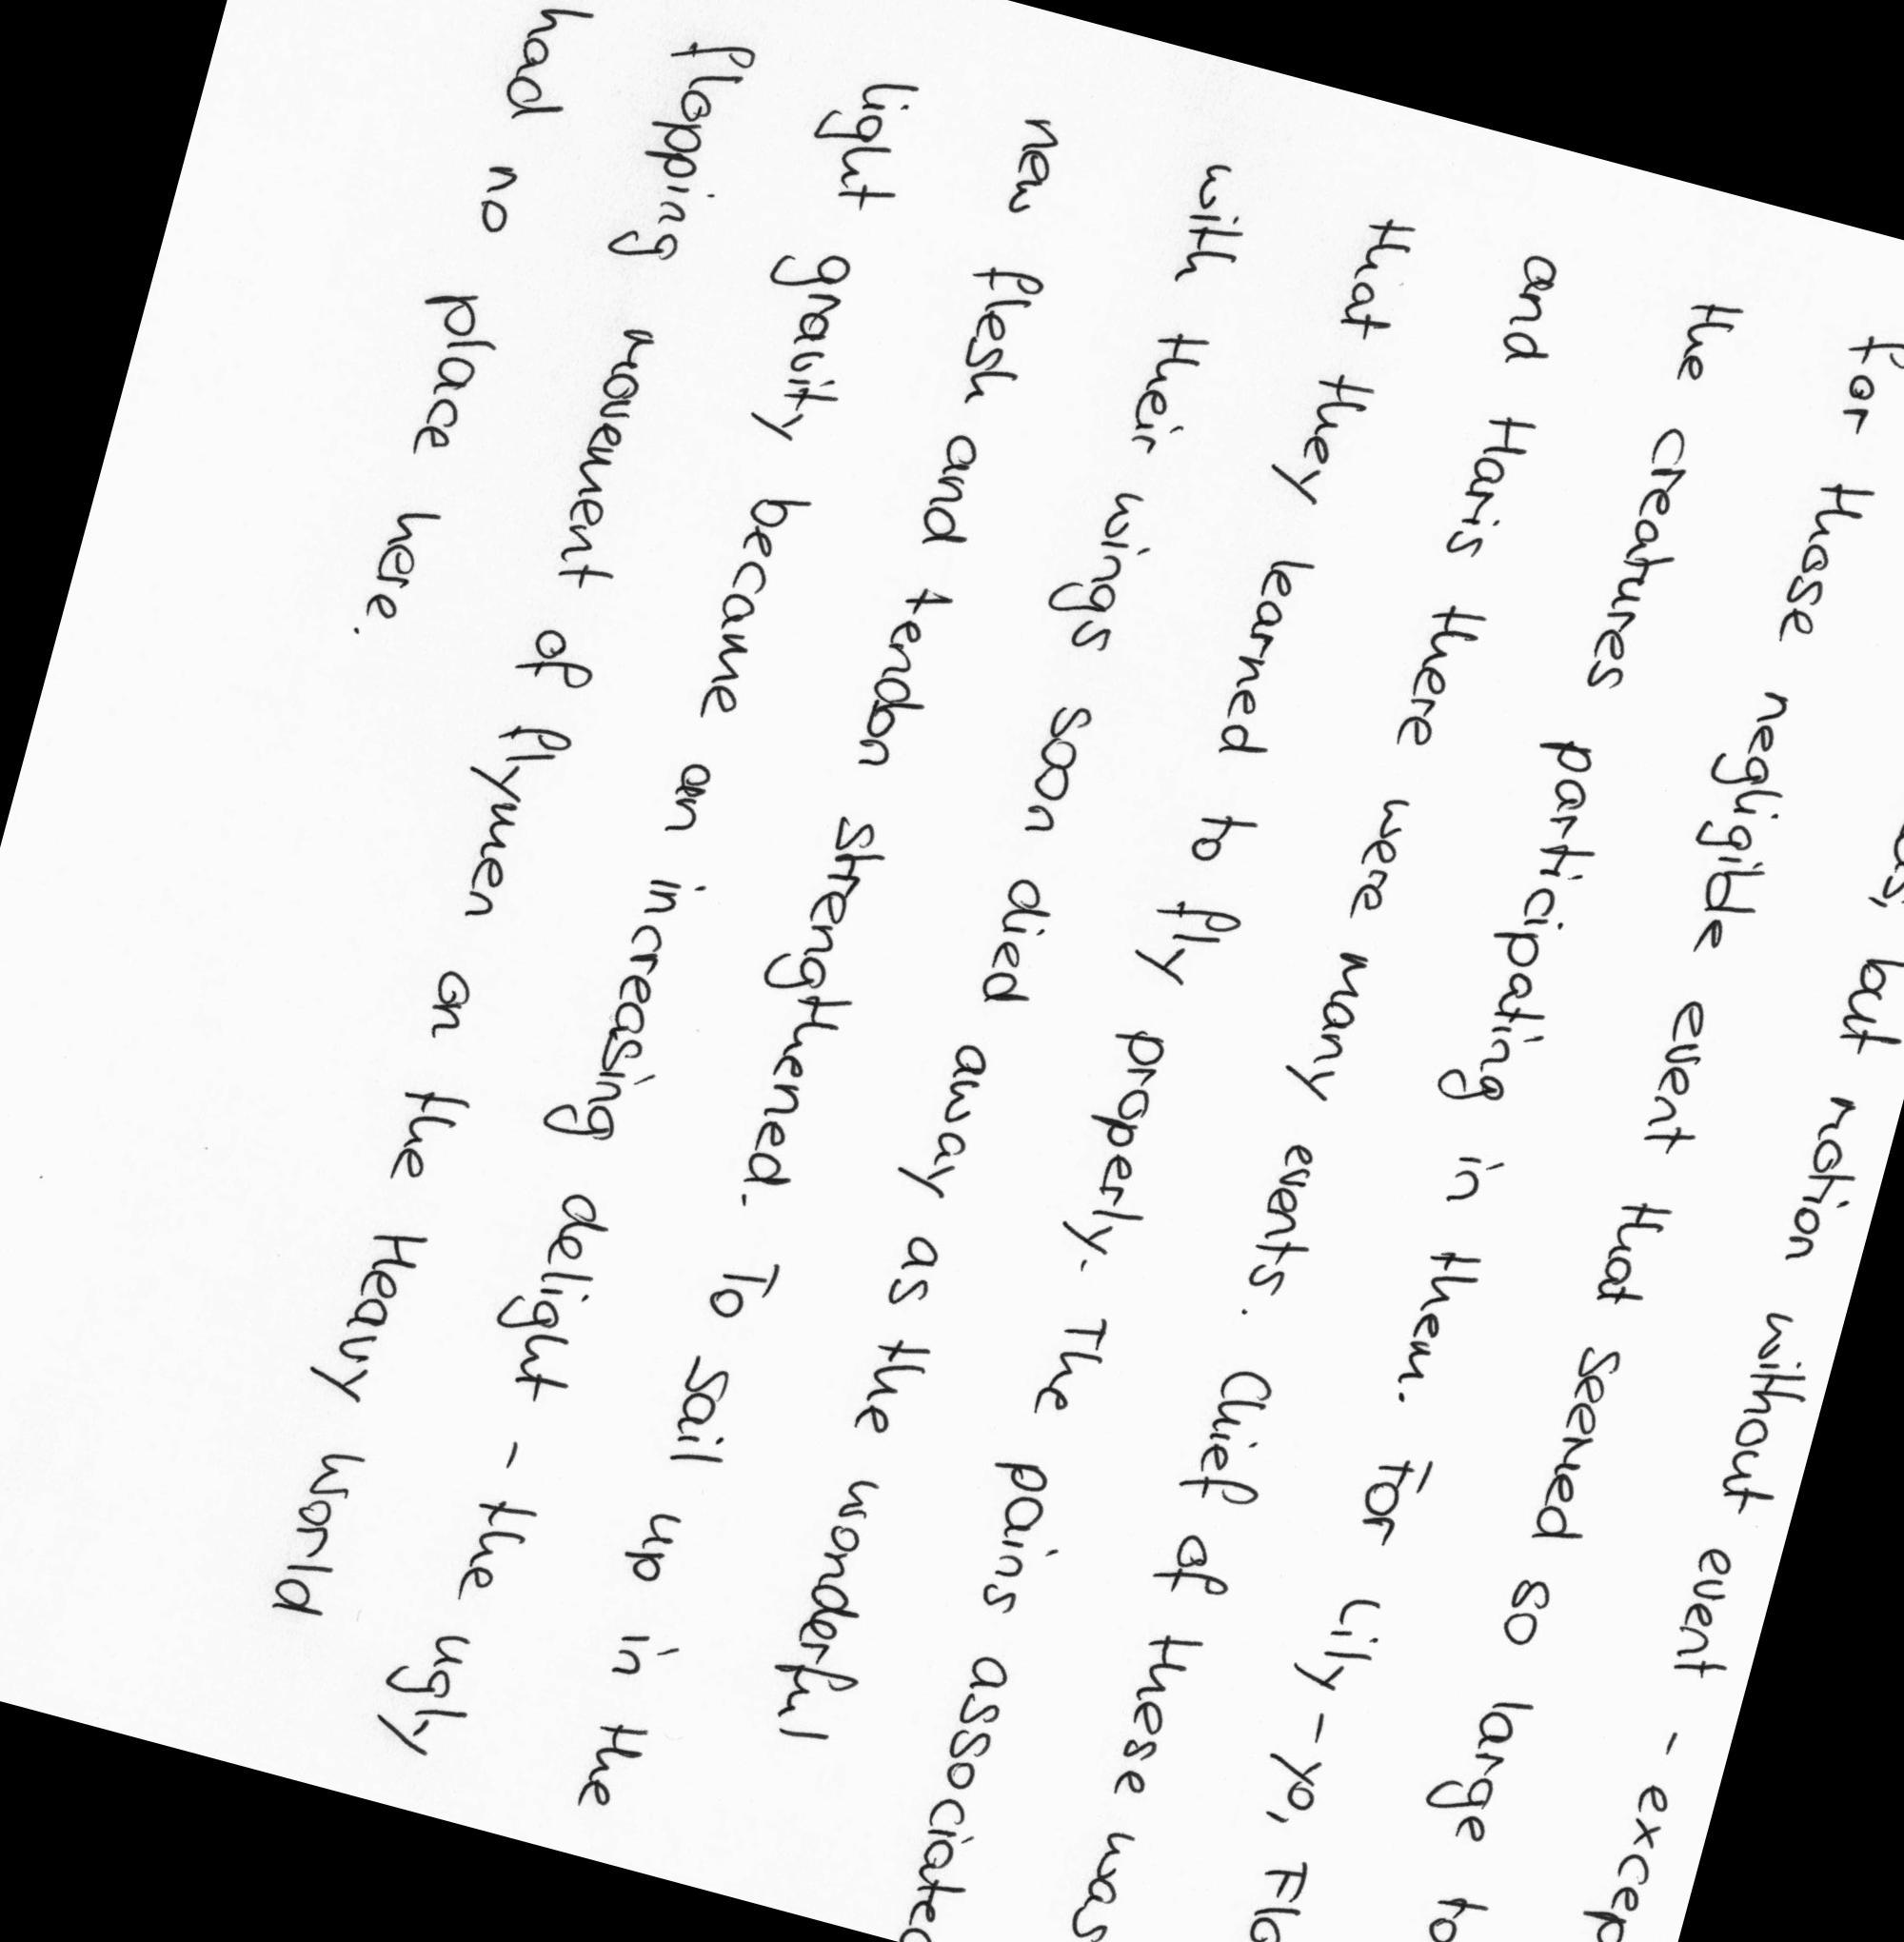 but motion without event - 
for those negligible event that seemed so large to
the creatures participating in them. For Lily-yo,
and Haris there were many events. Chief of these was
that they learned to fly properly. The pains associated
with their wings soon died away as the wonderful
new flesh and tendon strengthened. To sail up in the
light gravity became an increasing delight - the ugly
flopping movement of flymen on the Heavy World
had no place here.